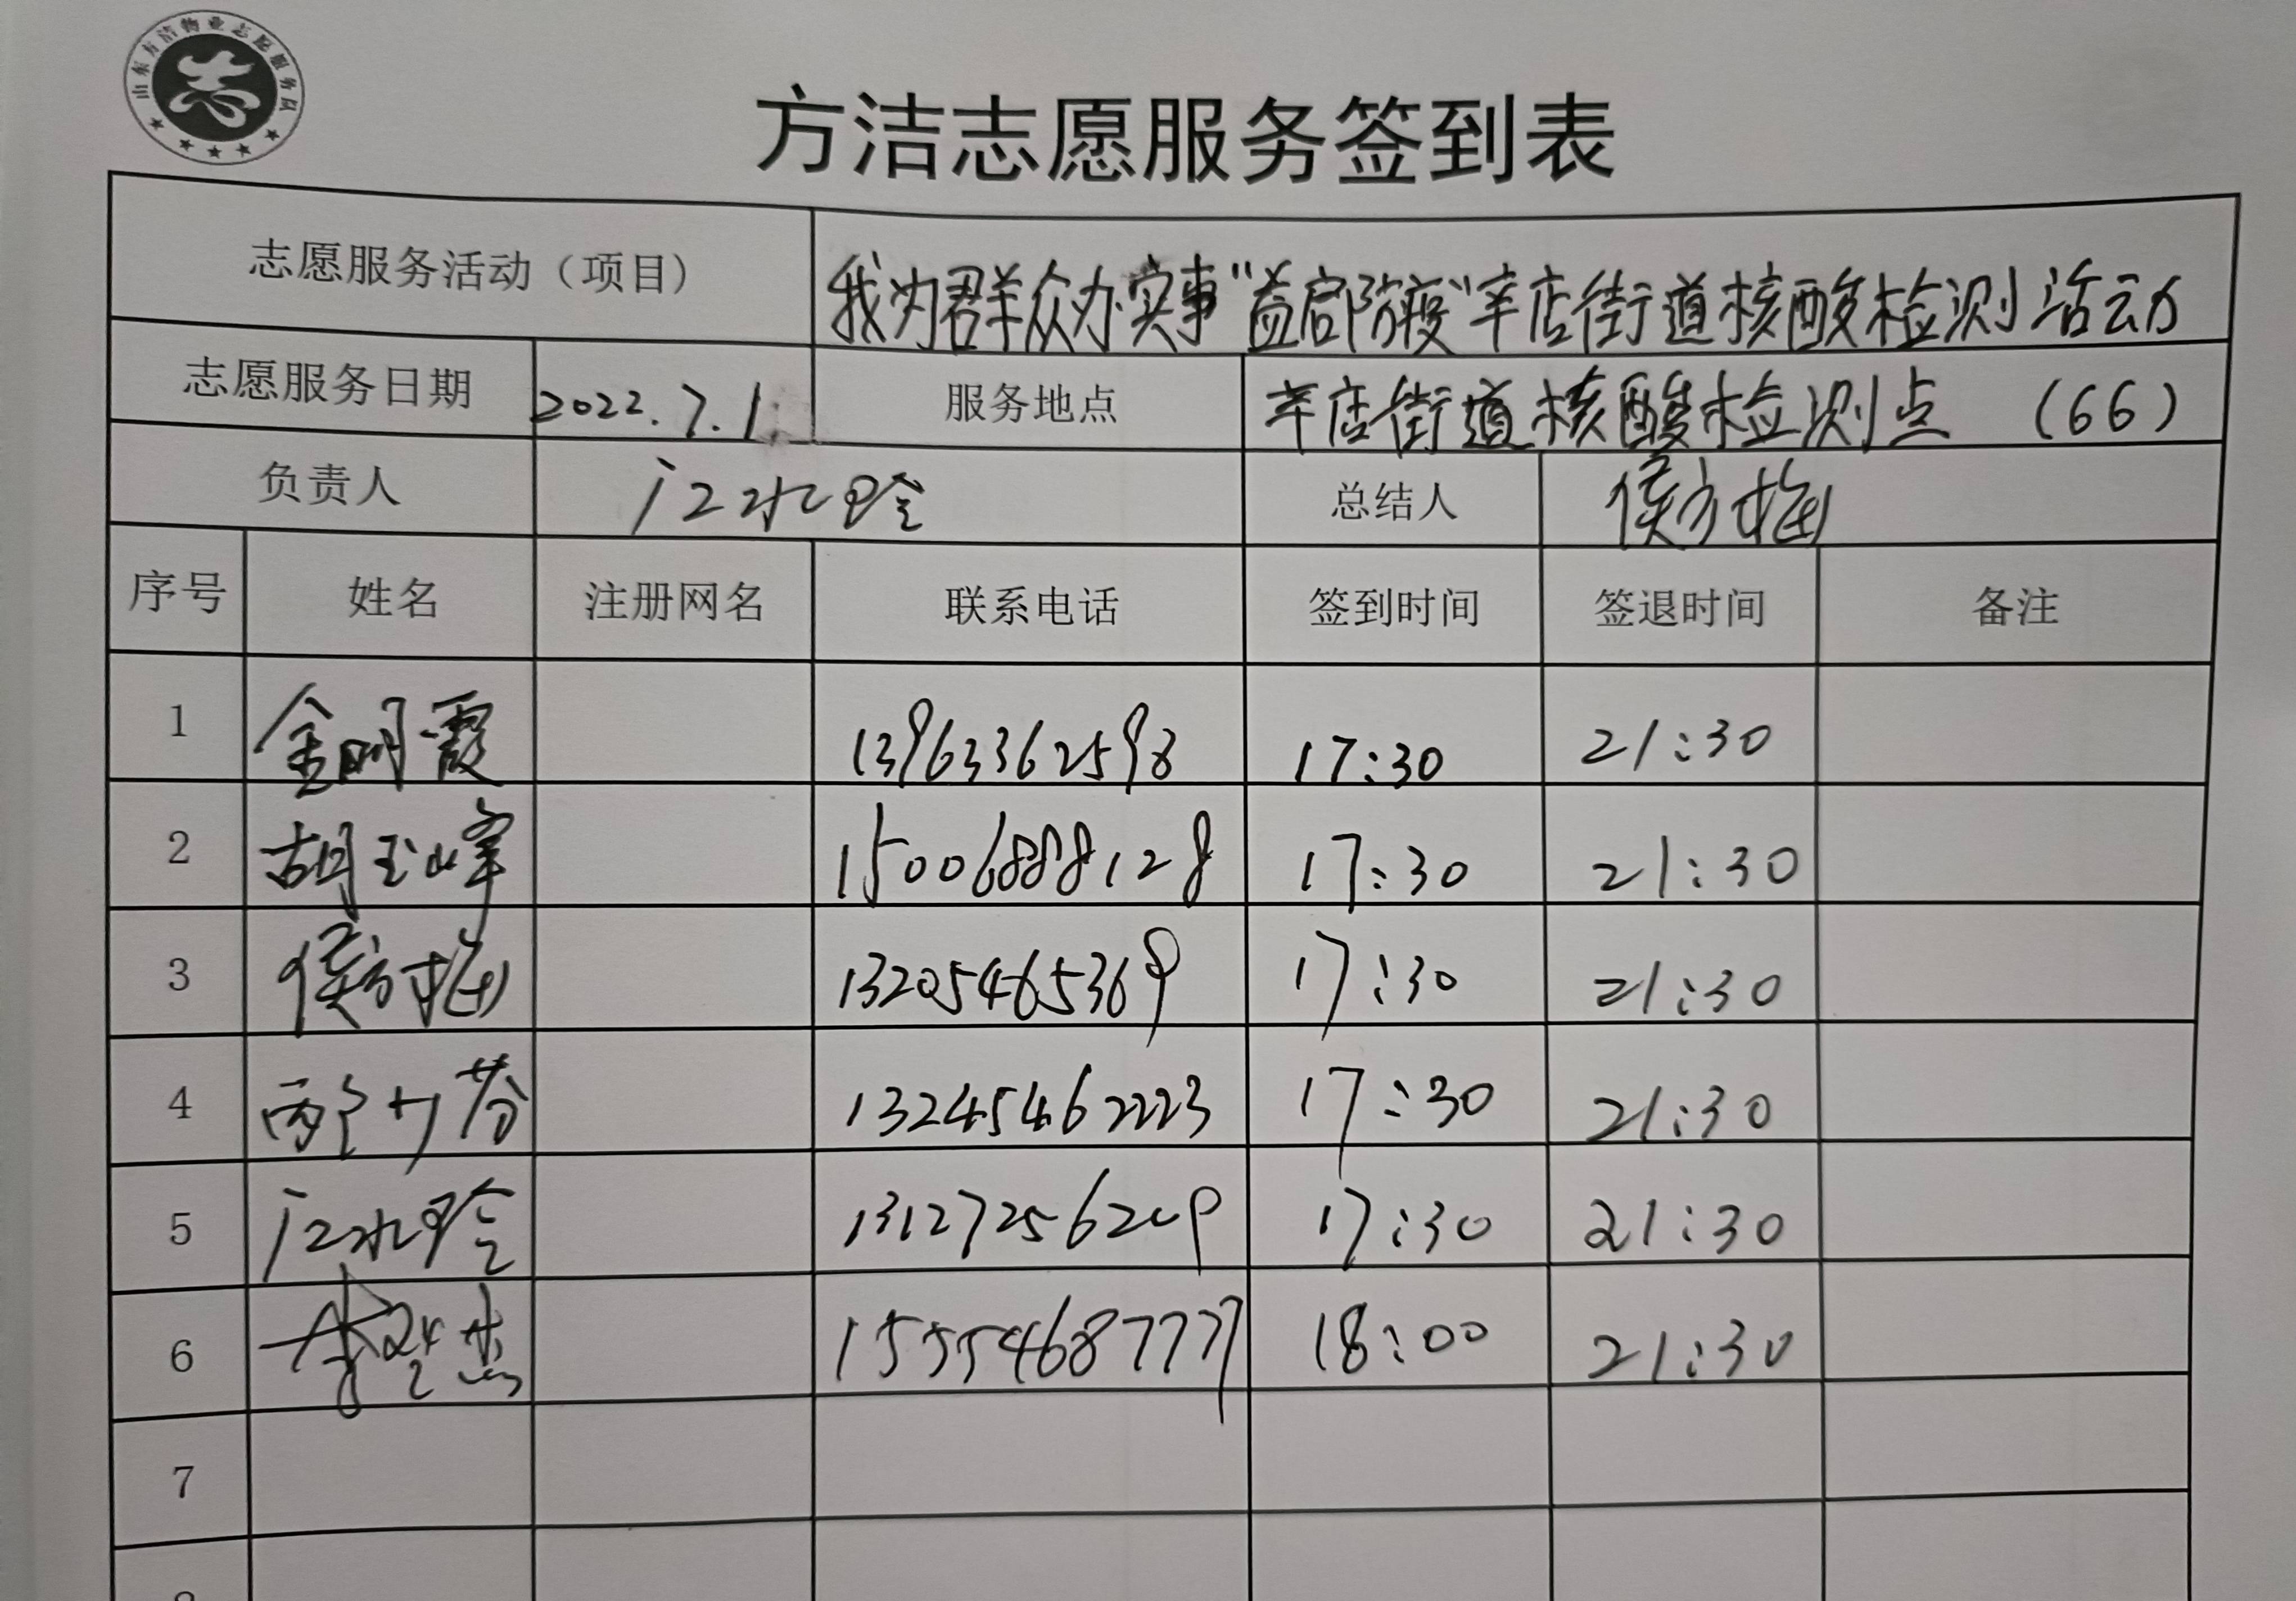 山东方洁物业志愿服务队
方洁志愿服务签到表
志愿服务活动（项目） 我为群众办实事"益启防疫"辛店街道核酸检测活动
志愿服务日期 2022.7.1 服务地点 辛店街道核酸检测点 (66)
负责人 江水玲 总结人 侯方梅
序号 姓名 注册网名 联系电话 签到时间 签退时间 备注
1 金明霞 13963362598 17:30 21:30
2 胡玉峰 15006888128 17:30 21:30
3 侯方梅 13205465369 17:30 21:30
4 13245462223 17:30 21:30
5 江水玲 13127256209 17:30 21:30
6 15554687777 18:00 21:30
7